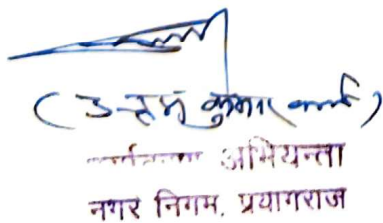 ( उत्तम कुमार वर्मा )
अभियन्ता
नगर निगम, प्रयागराज